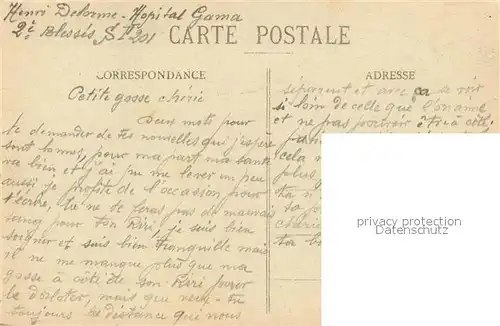 Henri Delorme - Hopital Gama
2è Blessés S IV 201
CARTE POSTALE
CORRESPONDANCE
Petite gosse chérie
Deux mots pour
te demander de tes nouvelles que j'espère
sont bonnes, pour ma part ma santé
va bien et j'ai pu me lever un peu
aussi je profite de l'occasion pour
t'écrire, tu ne te feras pas de mauvais
sang pour ton Riri, je suis bien
soigner et suis bien tranquille mais
il ne me manque plus que ma
gosse à côté de ton Riri pour
le dorloter, mais que veux-tu
toujours la distance qui nous
ADRESSE
séparent et avec ça se voir
si loin de celle que l'on aime
et ne pas pouvoir être à côté
cela
plus
ta
ta
chérie
ta
privacy protection
www.delcampe.net